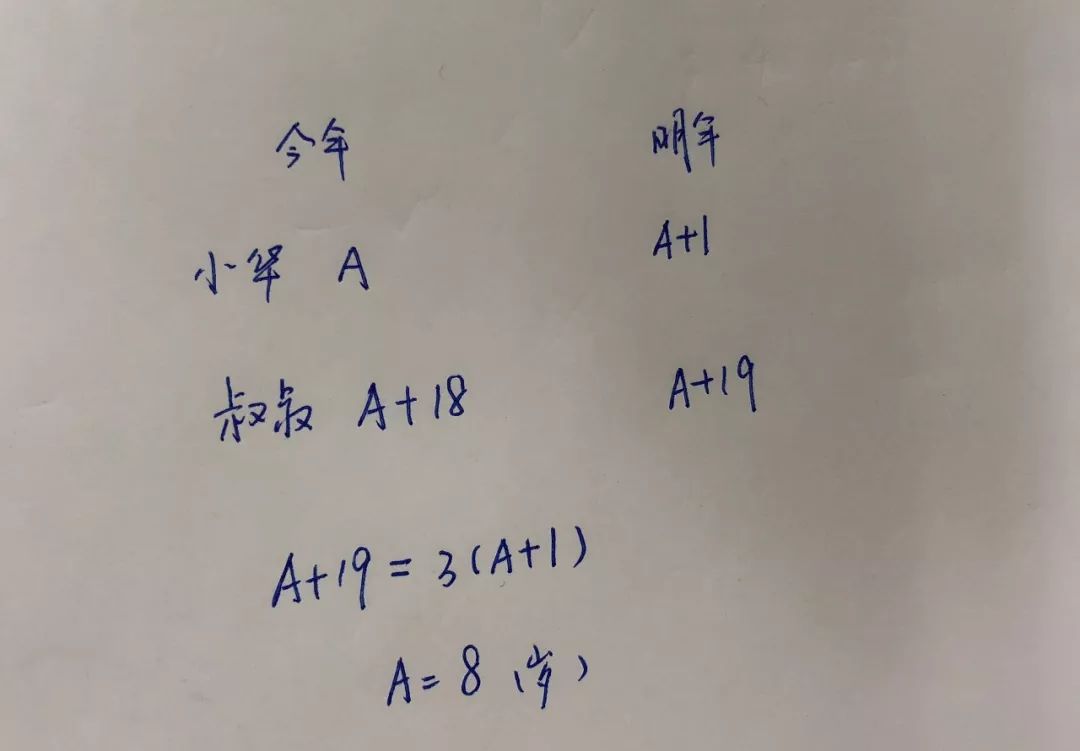 今年 明年
小华 A A+1
叔叔 A+18 A+19
A+19=3(A+1)
A=8(岁)